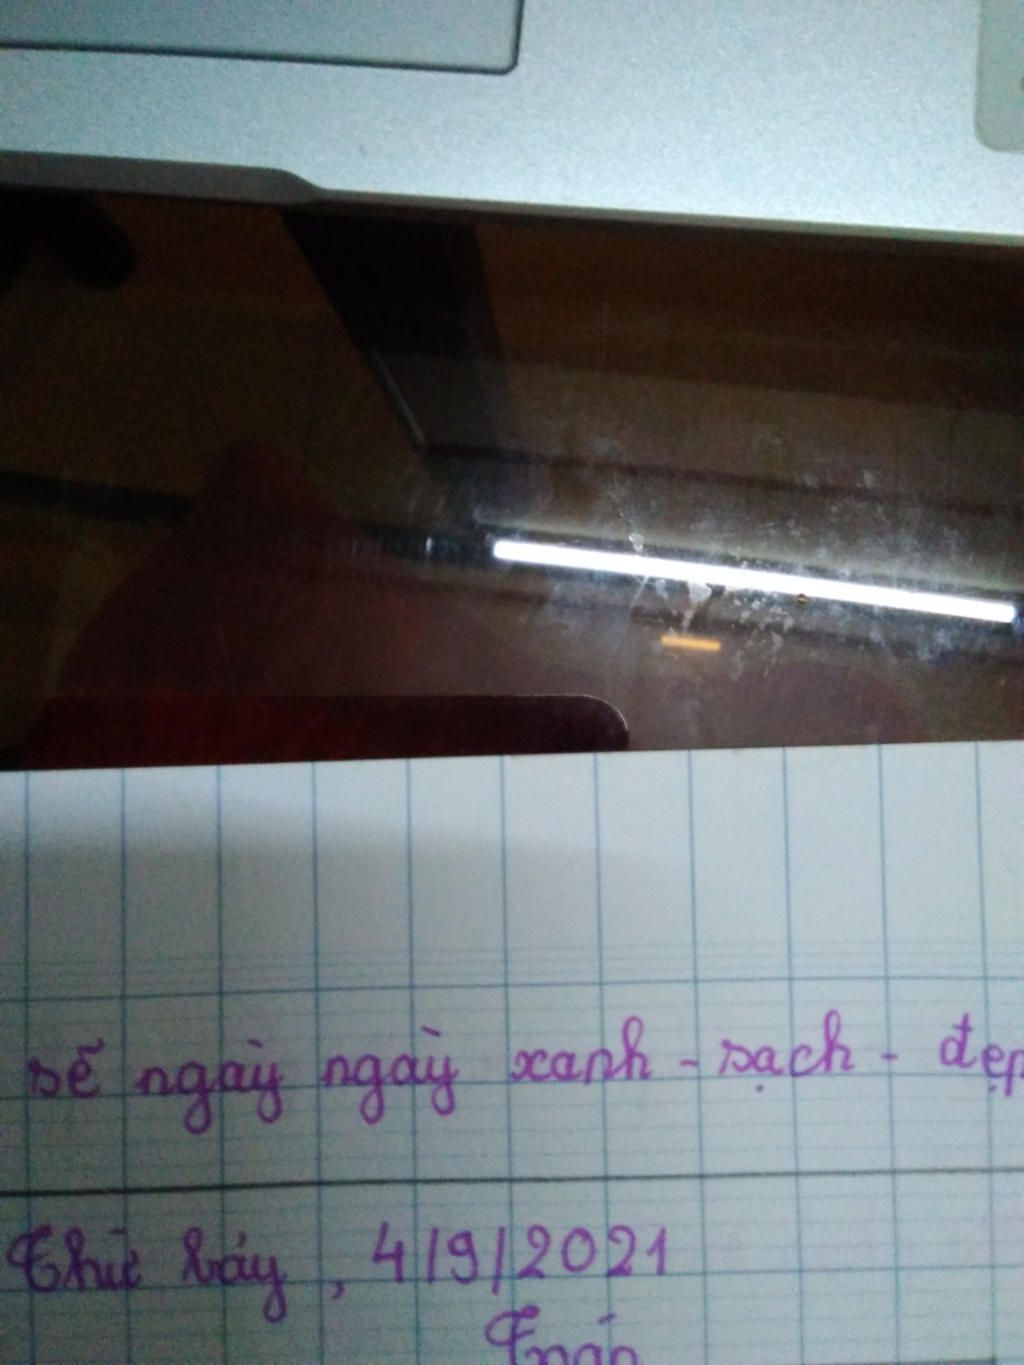 sẽ ngày ngày xanh - sạch - đẹp
Thứ bảy, 4/9/2021
Toán